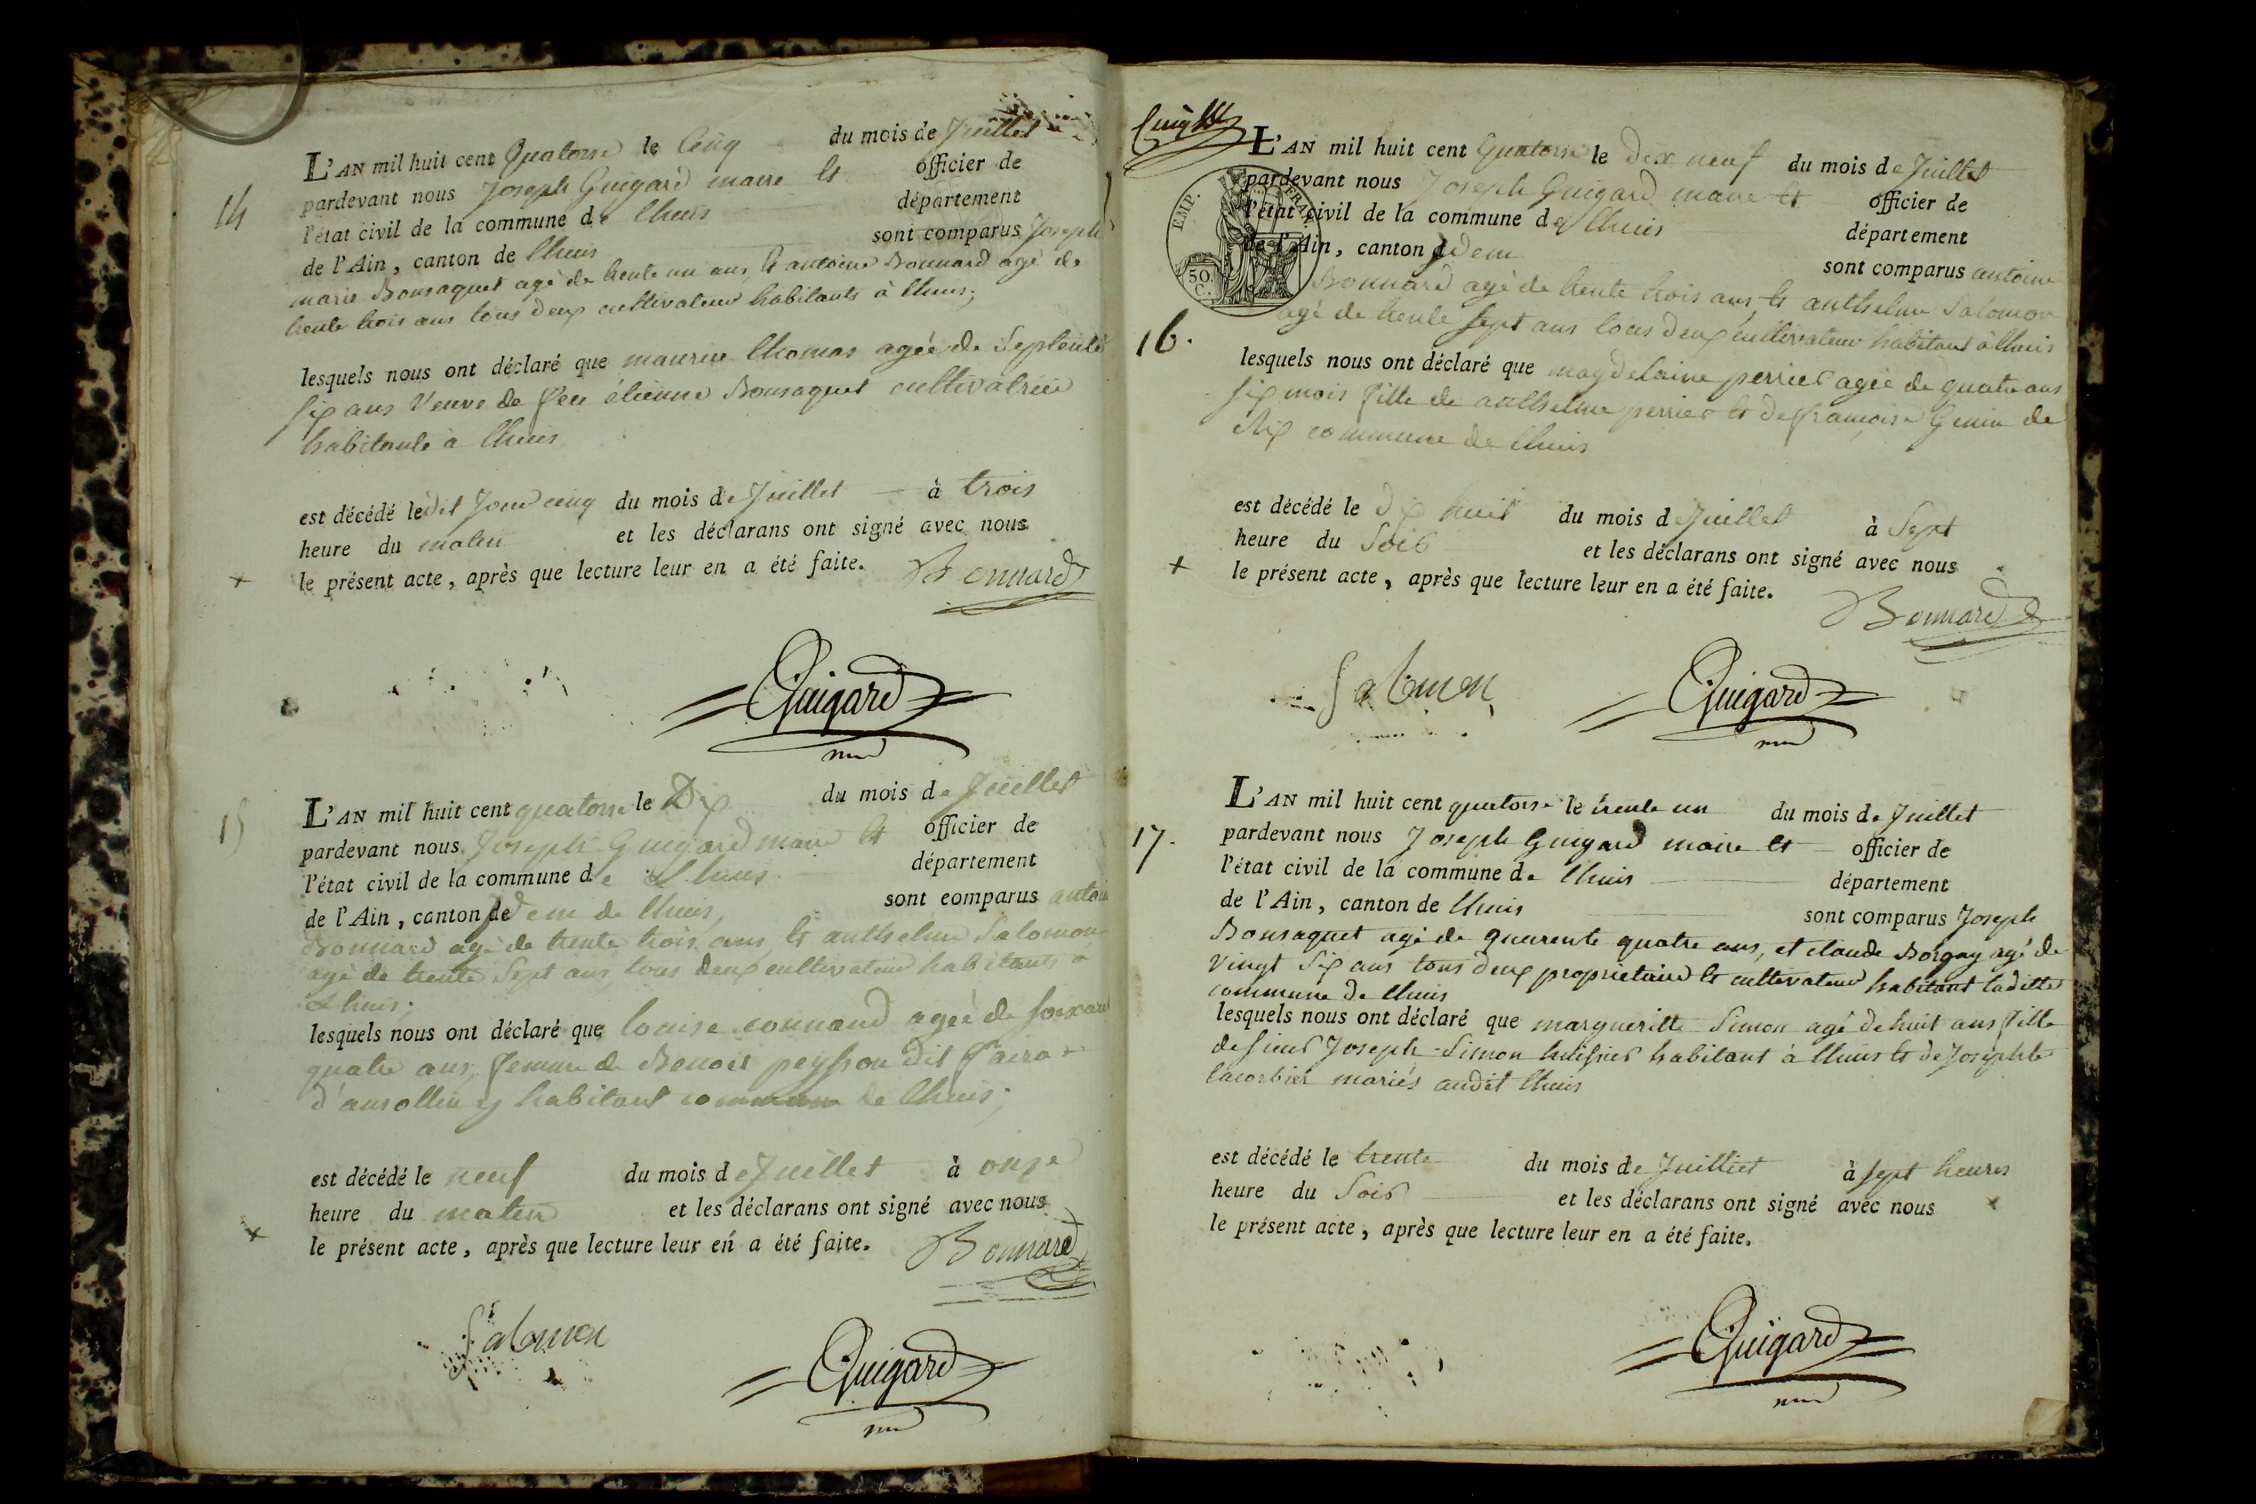 14
L'AN mil huit cent Quatorse le Cinq du mois de Juillet
pardevant nous Joseph Guigard maire et officier de
l'état civil de la commune de Lhuis département
de l'Ain, canton de Lhuis sont comparus Joseph
marie Bonsaquet agé de trente un ans, et antoine Bonnard agé de
trente trois ans tous deux cultivateur habitants à Lhuis;
lesquels nous ont déclaré que maurise thomas agée de Septente
six ans Veuve de feu étienne Bonsaquet cultivatrice
habitante à Lhuis
est décédé ledit Jour cinq du mois de Juillet à trois
heure du matin et les déclarans ont signé avec nous
le présent acte, après que lecture leur en a été faite. Bonnard
+
Guigard
15
L'AN mil huit cent quatorse le Dix du mois de Juillet
pardevant nous Joseph Guigard maire et officier de
l'état civil de la commune de Lhuis département
de l'Ain, canton de idem de Lhuis, sont comparus antoine
Bonnard agé de trente trois ans, et anthelme Salomon
agé de trente Sept ans, tous deux cultivateur habitants à
Lhuis;
lesquels nous ont déclaré que louise connand agée de soixante
quatre ans, femme de Benoit peysson dit
d'ansollin y habitant commune de Lhuis;
est décédé le neuf du mois de Juillet à onze
heure du matin et les déclarans ont signé avec nous
le présent acte, après que lecture leur en a été faite. Bonnard
+
Salomon
Guigard
EMP. FRAN.
50 C.
16.
L'AN mil huit cent Quatorse le Dix neuf du mois de Juillet
pardevant nous Joseph Guigard maire et officier de
l'état civil de la commune de Lhuis département
de l'Ain, canton idem sont comparus antoine
Bonnard agé de trente trois ans, et anthelme Salomon
agé de trente sept ans tous deux cultivateur habitant à Lhuis
lesquels nous ont déclaré que magdelaine perrier agée de quatre ans
six mois fille de anthelme perrier et de françoise Genin de
Rix commune de Lhuis
est décédé le dix huit du mois de Juillet à Sept
heure du Soir et les déclarans ont signé avec nous
le présent acte, après que lecture leur en a été faite.
+
Bonnard
Salomon
Guigard
17.
L'AN mil huit cent quatorse le trente un du mois de Juillet
pardevant nous Joseph Guigard maire et officier de
l'état civil de la commune de Lhuis département
de l'Ain, canton de Lhuis sont comparus Joseph
Bonsaquet agé de quarente quatre ans, et claude Borgay agé de
vingt Six ans tous deux proprietaire et cultivateur habitant laditte
commune de Lhuis
lesquels nous ont déclaré que margueritte Simon agé de huit ans fille
de sieur Joseph Simon huissier habitant à Lhuis et de Josephte
lacorbier mariés audit Lhuis
est décédé le trente du mois de Juilliet à sept heures
heure du Soir et les déclarans ont signé avec nous
le présent acte, après que lecture leur en a été faite.
Guigard